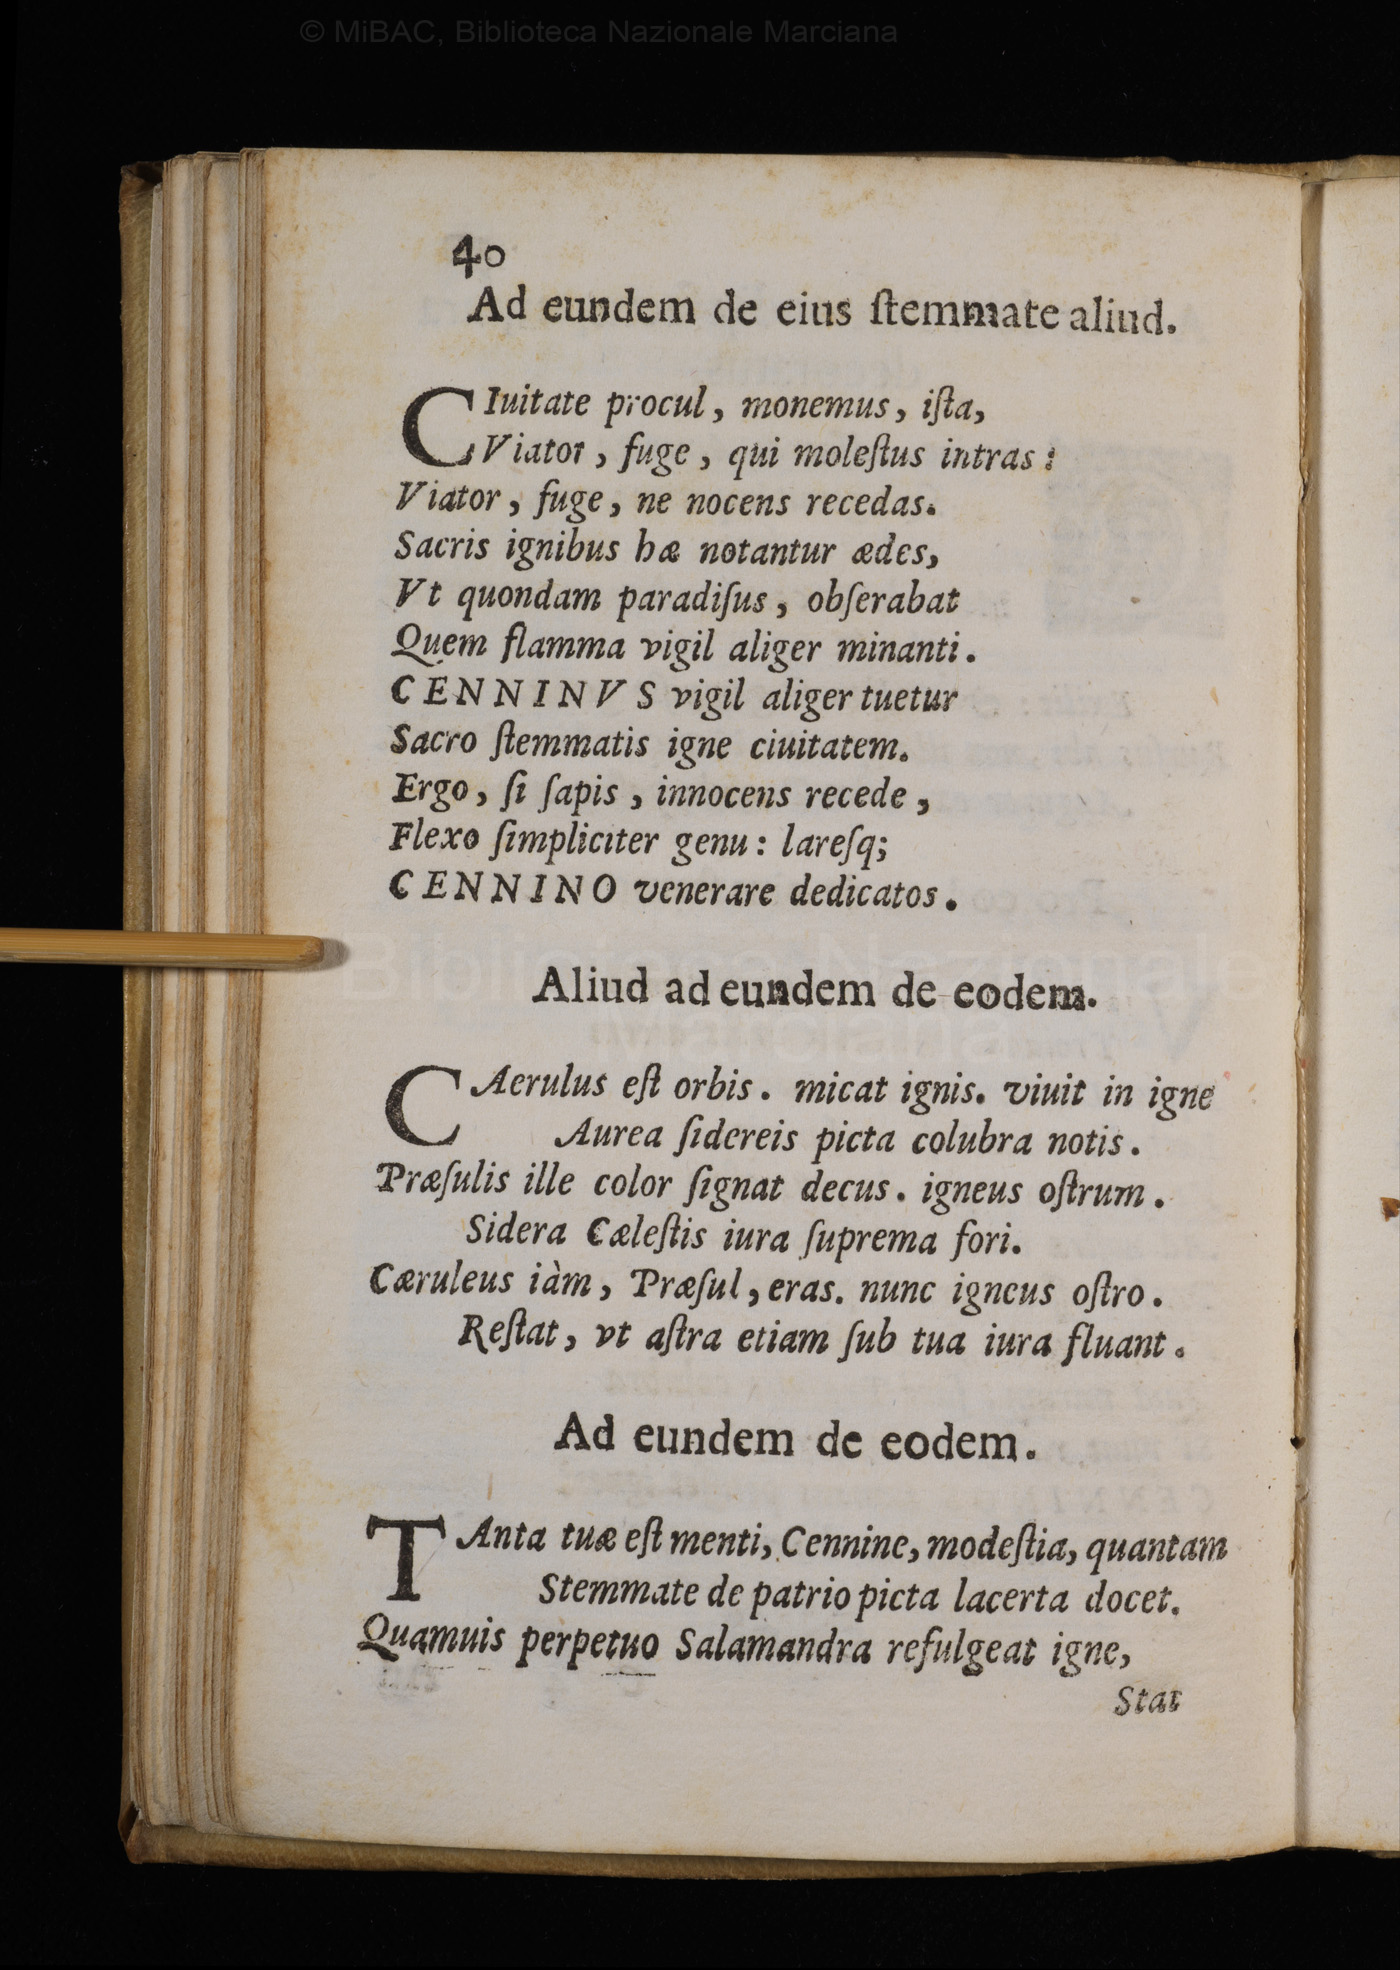 © MiBAC, Biblioteca Nazionale Marciana
40
Ad eundem de eius ſtemmate aliud.
CIuitate procul, monemus, iſta,
Viator, fuge, qui moleſtus intras:
Viator, fuge, ne nocens recedas.
Sacris ignibus hæ notantur ædes,
Vt quondam paradiſus, obſerabat
Quem flamma vigil aliger minanti.
CENNINVS vigil aliger tuetur
Sacro ſtemmatis igne ciuitatem.
Ergo, ſi ſapis, innocens recede,
Flexo ſimpliciter genu: lareſq;
CENNINO venerare dedicatos.
Aliud ad eundem de eodem.
CAerulus eſt orbis. micat ignis. viuit in igne
Aurea ſidereis picta colubra notis.
Præſulis ille color ſignat decus. igneus oſtrum.
Sidera Cæleſtis iura ſuprema fori.
Cæruleus iàm, Præſul, eras. nunc igneus oſtro.
Reſtat, vt aſtra etiam ſub tua iura fluant.
Ad eundem de eodem.
TAnta tuæ eſt menti, Cennine, modeſtia, quantam
Stemmate de patrio picta lacerta docet.
Quamuis perpetuo Salamandra refulgeat igne,
Stat